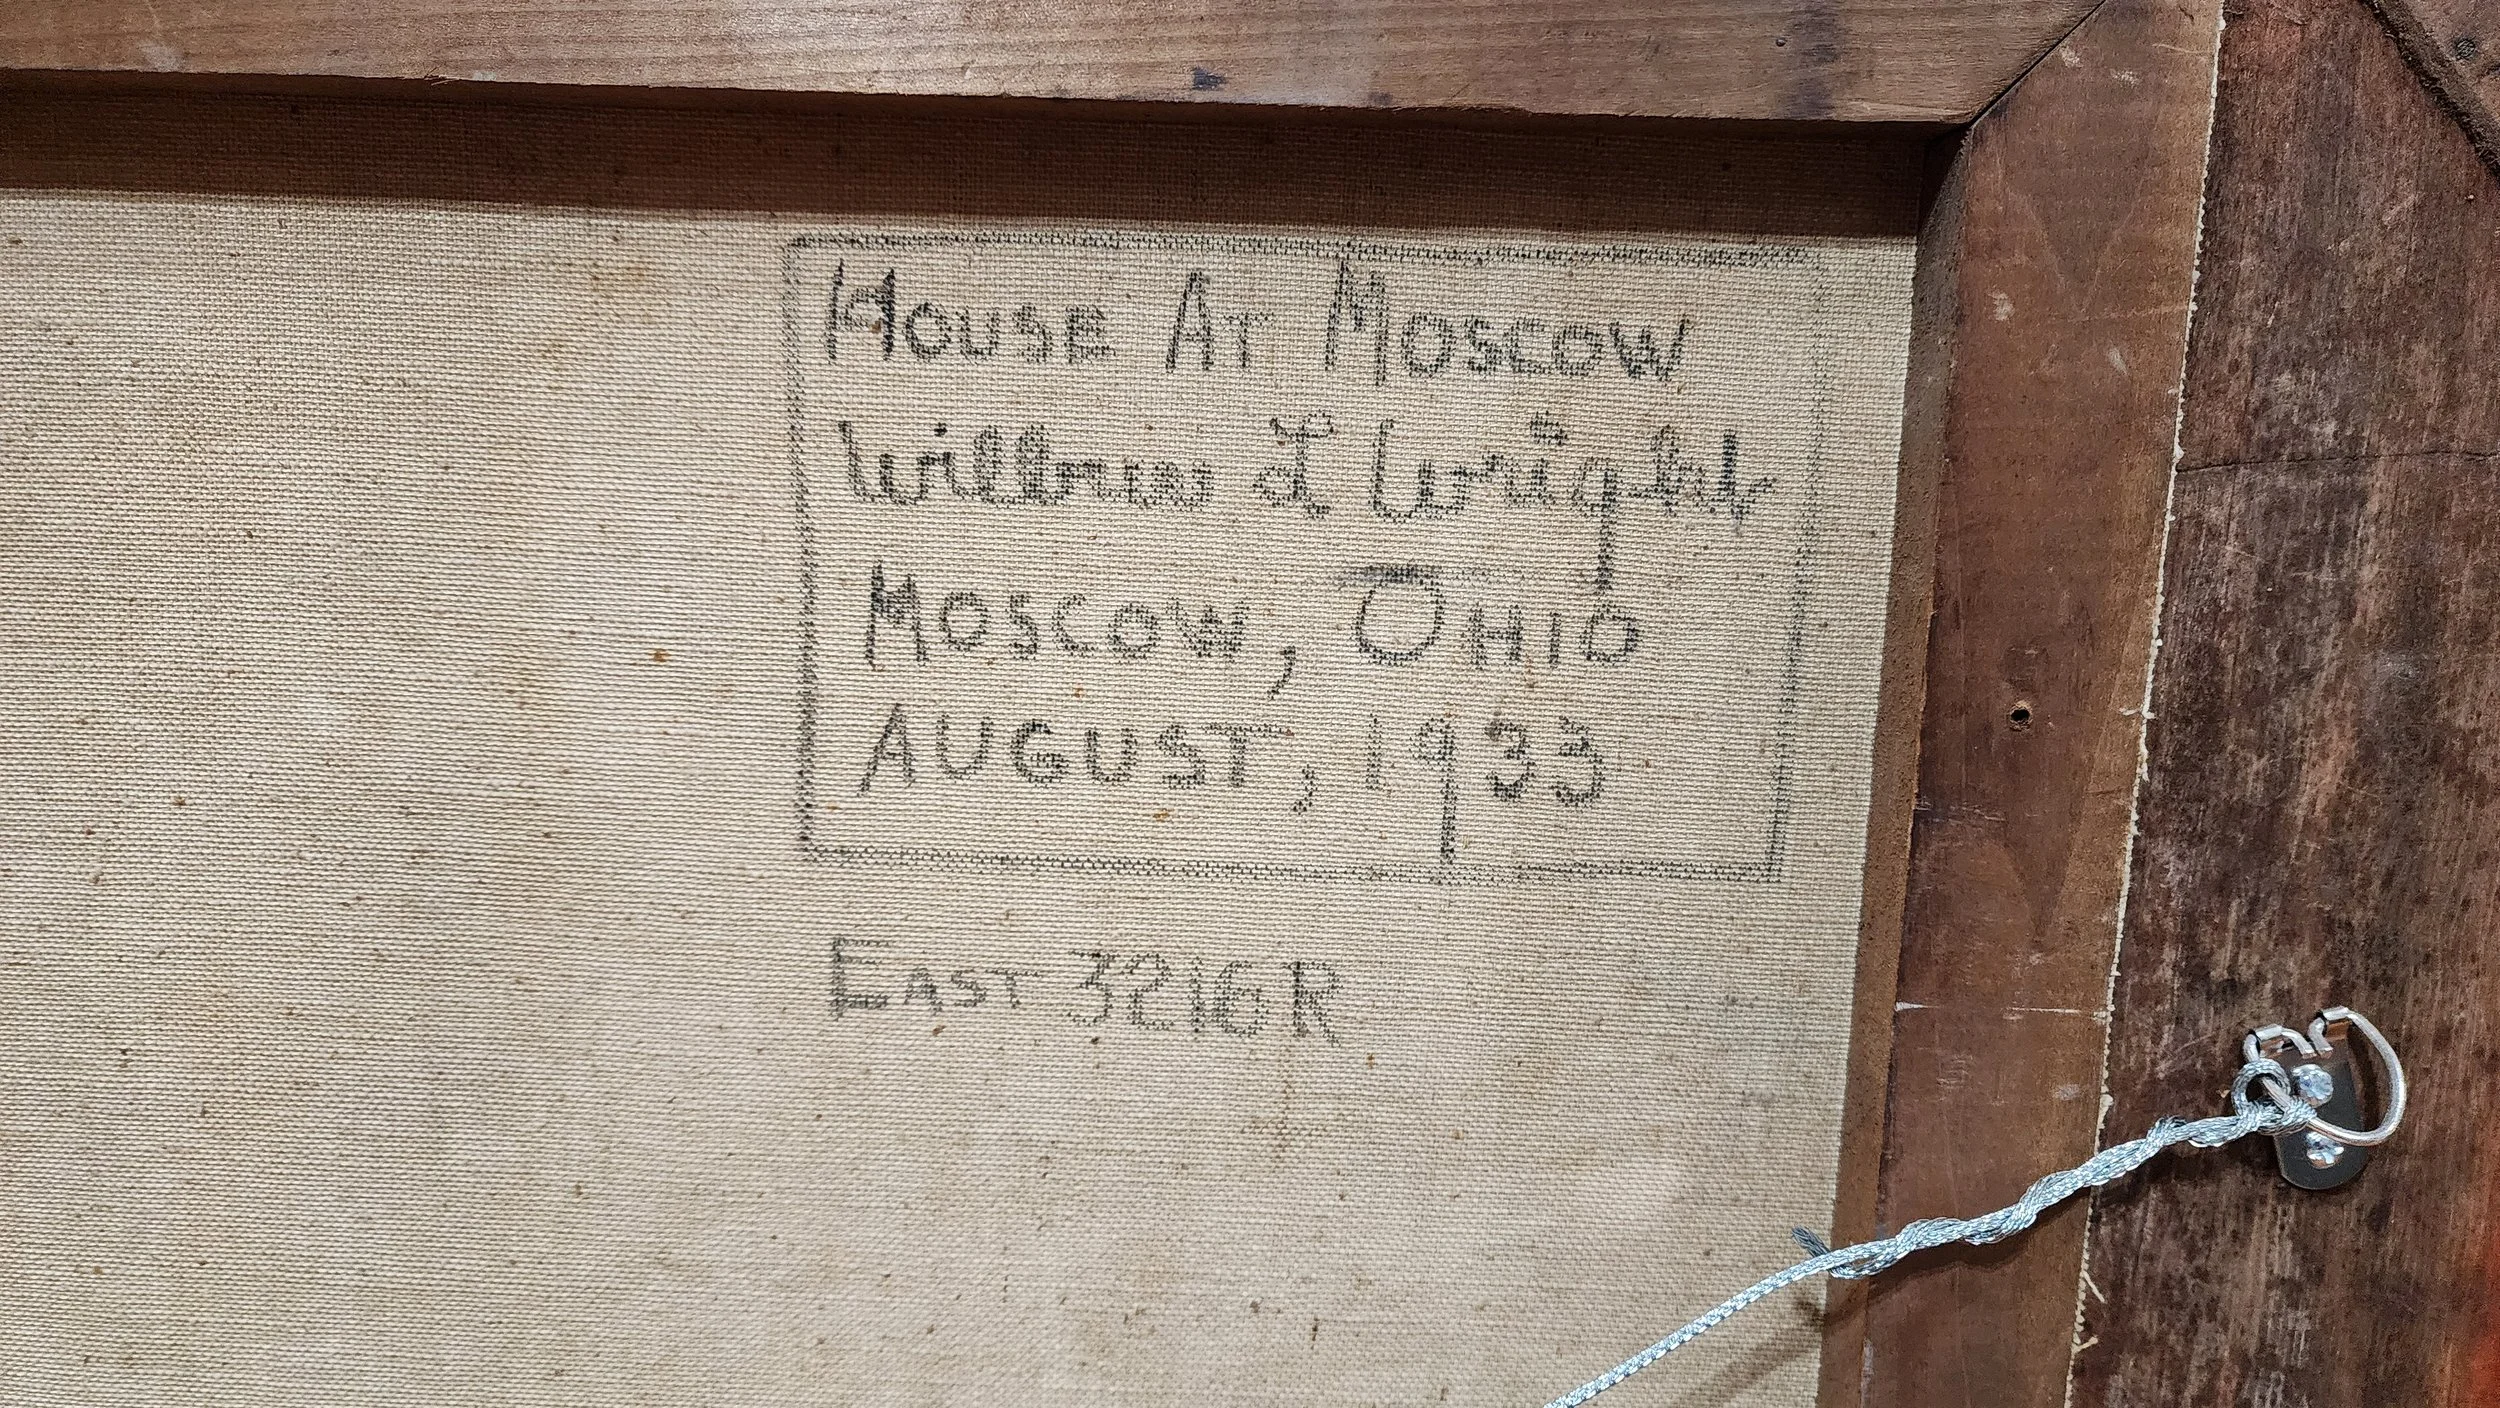 House At Moscow
Willbrew L Wright
Moscow, Ohio
August, 1933
East 3216R